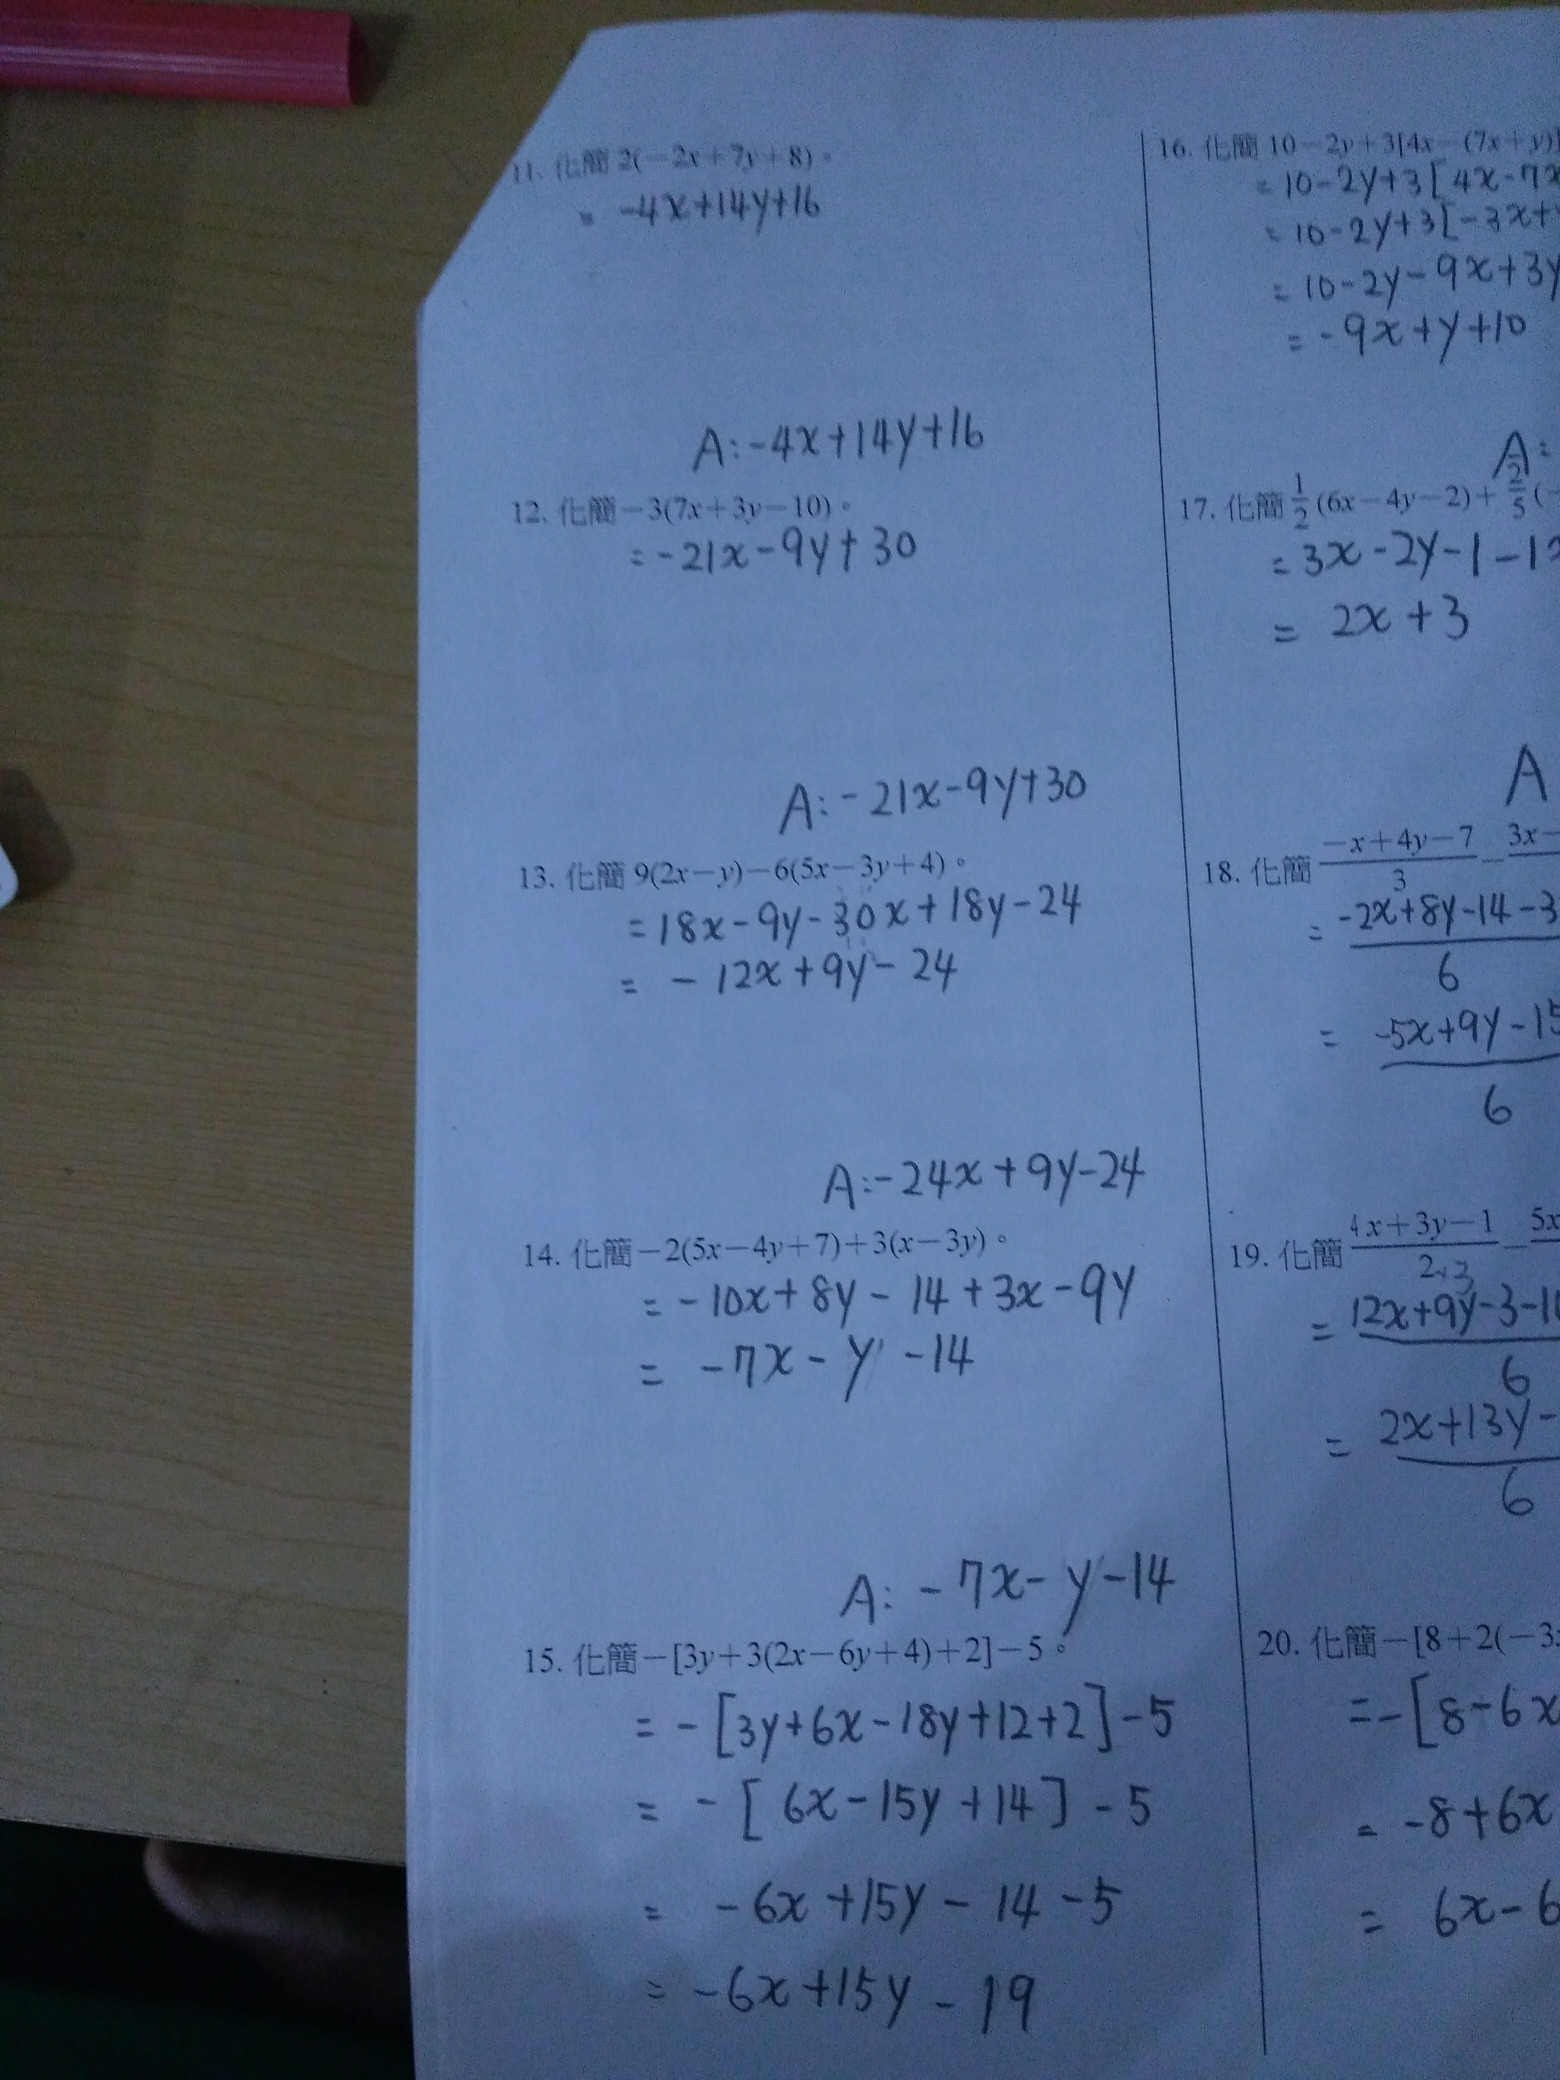 11. 化簡 2(−2x+7y+8)。
= -4x+14y+16
A: -4x+14y+16
12. 化簡−3(7x+3y−10)。
= -21x-9y+30
A: -21x-9y+30
13. 化簡 9(2x−y)−6(5x−3y+4)。
= 18x-9y-30x+18y-24
= -12x+9y-24
A: -24x+9y-24
14. 化簡−2(5x−4y+7)+3(x−3y)。
= -10x+8y-14+3x-9y
= -7x-y-14
A: -7x-y-14
15. 化簡−[3y+3(2x−6y+4)+2]−5。
= -[3y+6x-18y+12+2]-5
= -[6x-15y+14]-5
= -6x+15y-14-5
= -6x+15y-19
16. 化簡 10−2y+3[4x−(7x+y)]
= 10-2y+3[4x-7x
= 10-2y+3[-3x+
= 10-2y-9x+3y
= -9x+y+10
A:
17. 化簡 1/2 (6x−4y−2)+ 2/5 (−
= 3x-2y-1-1
= 2x+3
A
18. 化簡 −x+4y−7 − 3x−
3
= -2x+8y-14-3
6
= -5x+9y-15
6
19. 化簡 4x+3y−1 − 5x
2×3
= 12x+9y-3-10
6
= 2x+13y-
6
20. 化簡−[8+2(−3
=-[8-6x
= -8+6x
= 6x-6